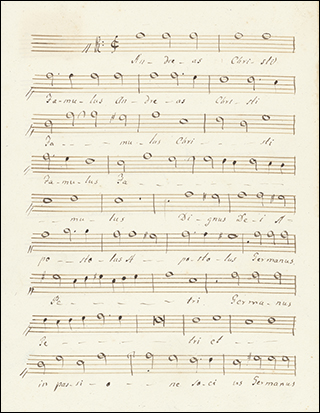 An - dre - as Chri - sti
Fa - mu - lus An - dre - as Chri - sti
Fa - - - mu - lus Chri - - sti
Famulus Fa - - - - -
- - mu - lus Dignus De - i A -
po - - sto - lus A - - postolus Germanus
Pe - - - - tri Germa - nus
Pe - - - - - tri et - -
in pas - si - o - - ne so - ci - us Germanus